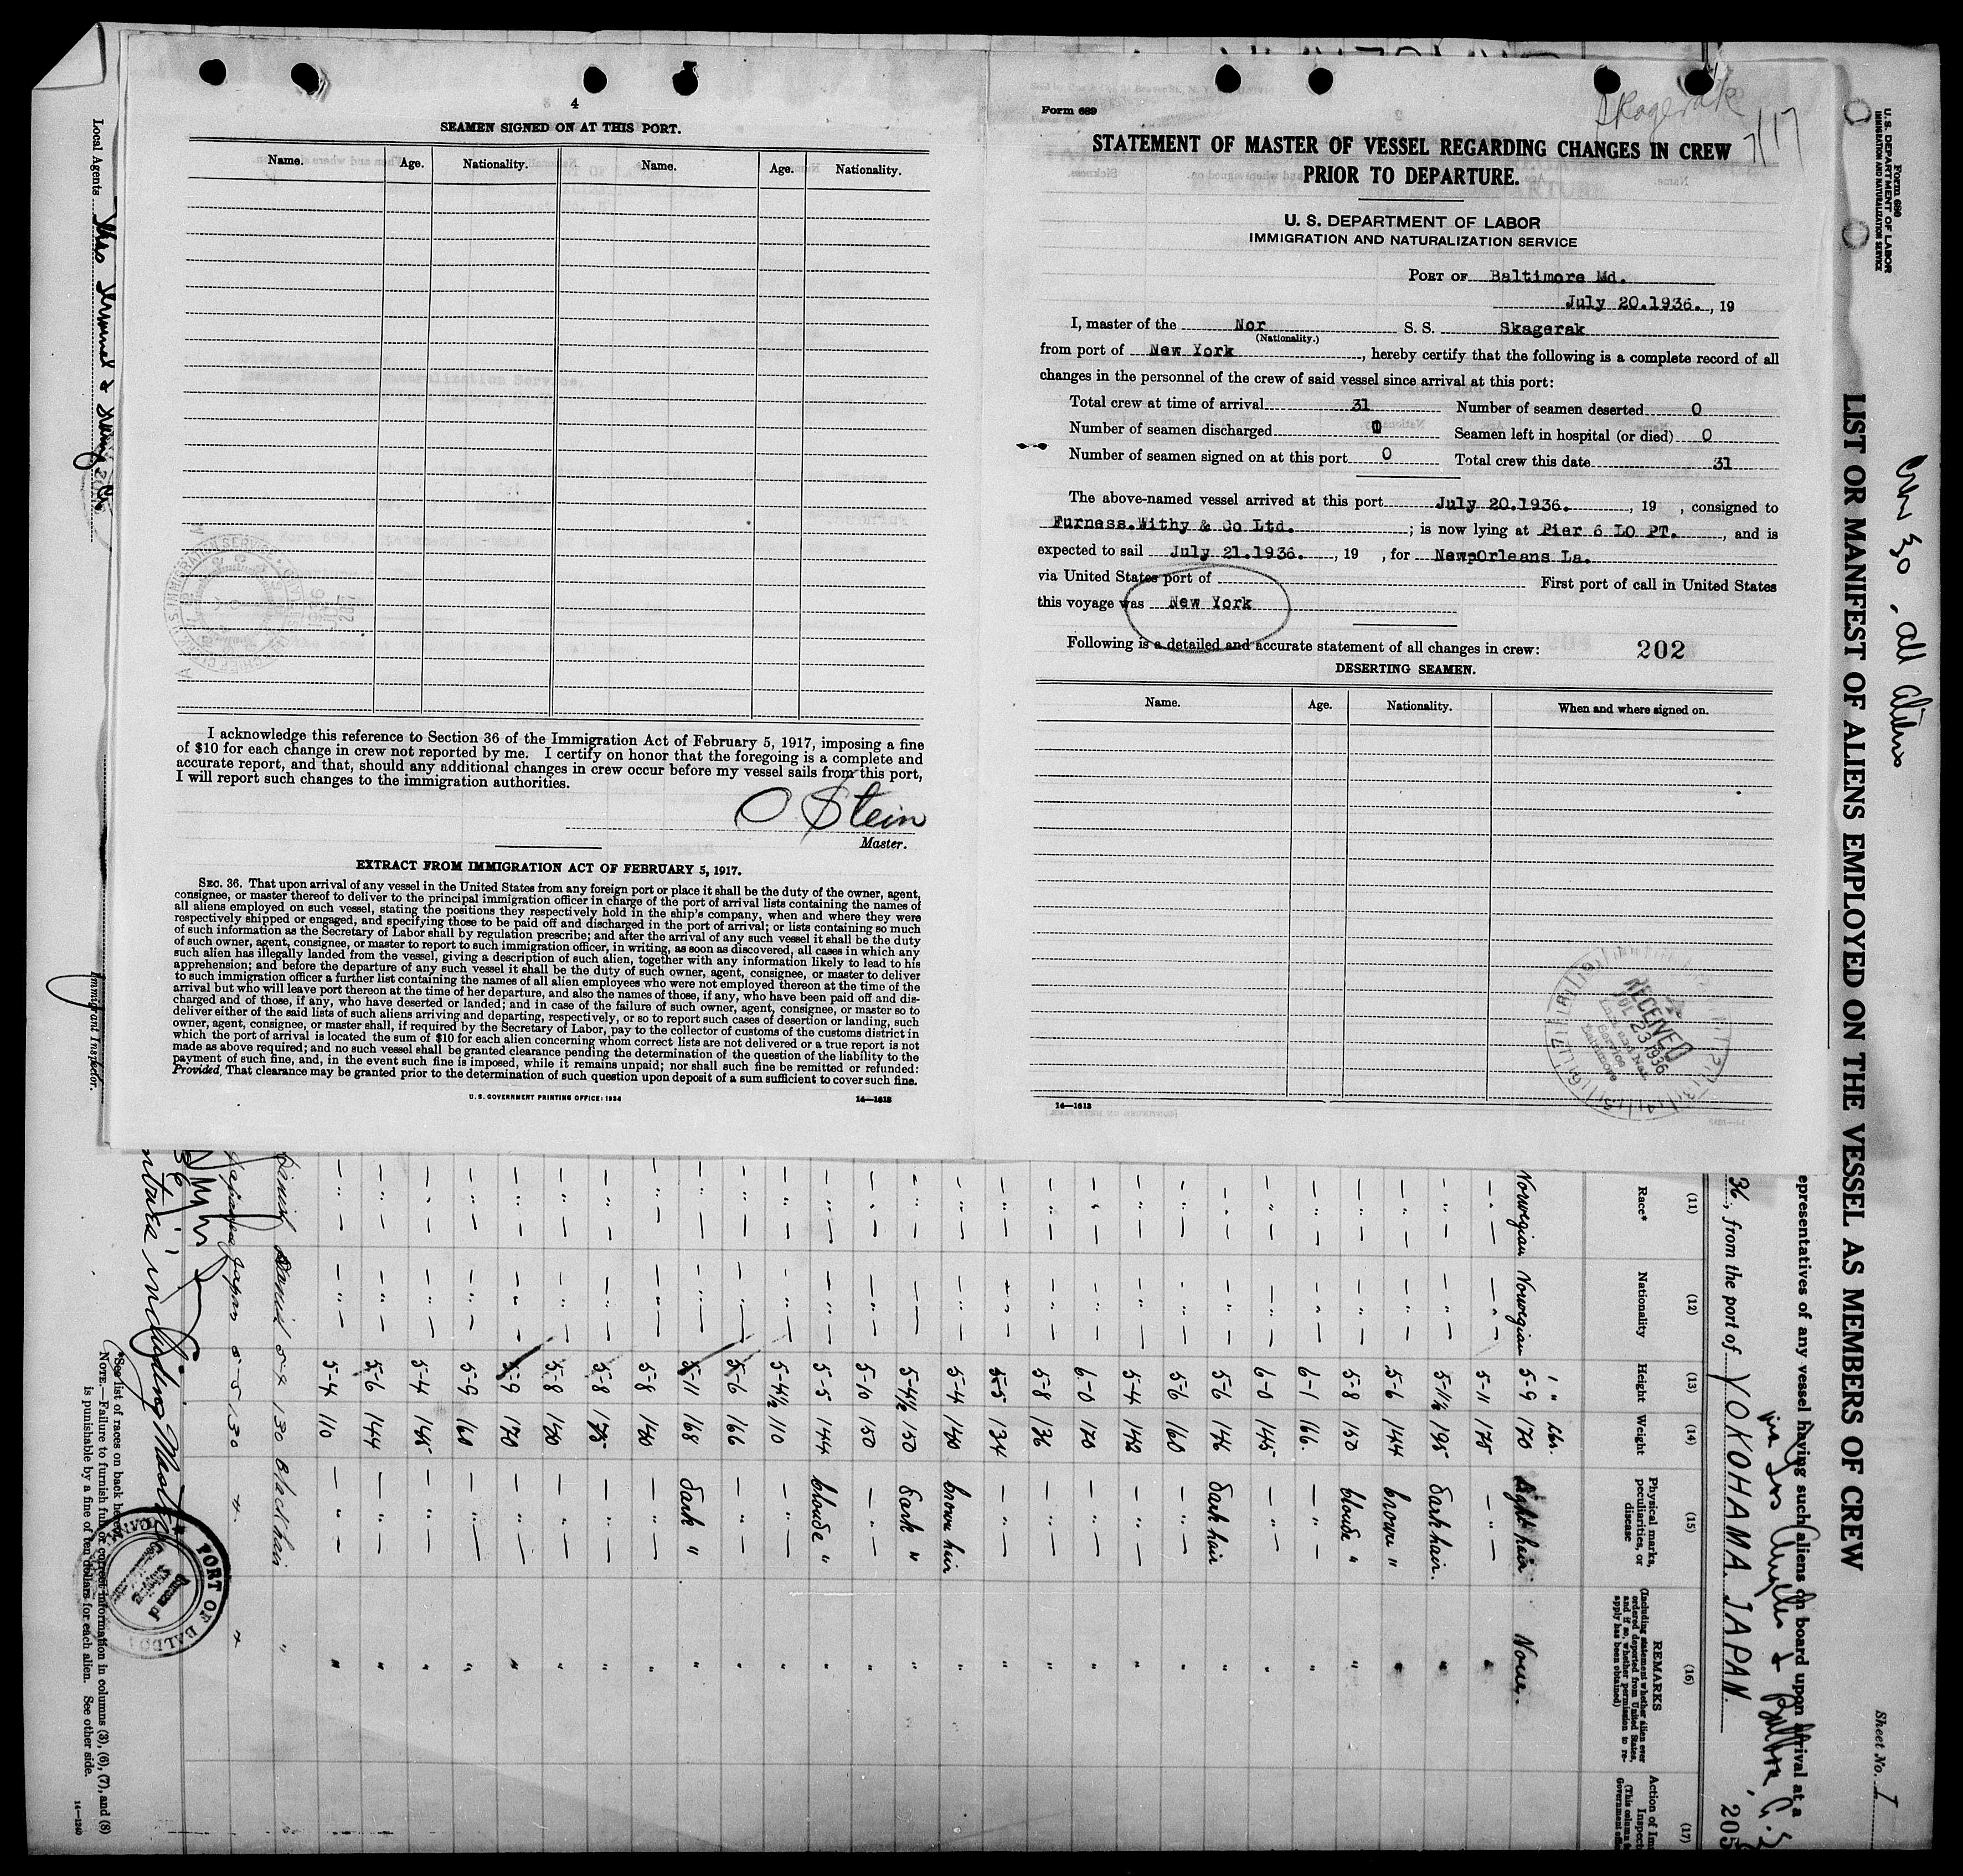 4
SEAMEN SIGNED ON AT THIS PORT.
Name. Age. Nationality. Name. Age. Nationality.
I acknowledge this reference to Section 36 of the Immigration Act of February 5, 1917, imposing a fine
of $10 for each change in crew not reported by me. I certify on honor that the foregoing is a complete and
accurate report, and that, should any additional changes in crew occur before my vessel sails from this port,
I will report such changes to the immigration authorities.
O Stein
Master.
EXTRACT FROM IMMIGRATION ACT OF FEBRUARY 5, 1917.
SEC. 36. That upon arrival of any vessel in the United States from any foreign port or place it shall be the duty of the owner, agent,
consignee, or master thereof to deliver to the principal immigration officer in charge of the port of arrival lists containing the names of
all aliens employed on such vessel, stating the positions they respectively hold in the ship's company, when and where they were
respectively shipped or engaged, and specifying those to be paid off and discharged in the port of arrival; or lists containing so much
of such information as the Secretary of Labor shall by regulation prescribe; and after the arrival of any such vessel it shall be the duty
of such owner, agent, consignee, or master to report to such immigration officer, in writing, as soon as discovered, all cases in which any
such alien has illegally landed from the vessel, giving a description of such alien, together with any information likely to lead to his
apprehension; and before the departure of any such vessel it shall be the duty of such owner, agent, consignee, or master to deliver
to such immigration officer a further list containing the names of all alien employees who were not employed thereon at the time of the
arrival but who will leave port thereon at the time of her departure, and also the names of those, if any, who have been paid off and dis-
charged and of those, if any, who have deserted or landed; and in case of the failure of such owner, agent, consignee, or master so to
deliver either of the said lists of such aliens arriving and departing, respectively, or so to report such cases of desertion or landing, such
owner, agent, consignee, or master shall, if required by the Secretary of Labor, pay to the collector of customs of the customs district in
which the port of arrival is located the sum of $10 for each alien concerning whom correct lists are not delivered or a true report is not
made as above required; and no such vessel shall be granted clearance pending the determination of the question of the liability to the
payment of such fine, and, in the event such fine is imposed, while it remains unpaid; nor shall such fine be remitted or refunded:
Provided, That clearance may be granted prior to the determination of such question upon deposit of a sum sufficient to cover such fine.
U. S. GOVERNMENT PRINTING OFFICE: 1934 14—1613
Form 689
Skagerak
7/17
STATEMENT OF MASTER OF VESSEL REGARDING CHANGES IN CREW
PRIOR TO DEPARTURE.
U. S. DEPARTMENT OF LABOR
IMMIGRATION AND NATURALIZATION SERVICE
PORT OF Baltimore Md.
July 20.1936. , 19
I, master of the Nor S. S. Skagerak
(Nationality.)
from port of New York , hereby certify that the following is a complete record of all
changes in the personnel of the crew of said vessel since arrival at this port:
Total crew at time of arrival 31 Number of seamen deserted 0
Number of seamen discharged Seamen left in hospital (or died) 0
Number of seamen signed on at this port 0 Total crew this date 31
The above-named vessel arrived at this port July 20.1936. , 19 , consigned to
Furness.Withy & Co Ltd. ; is now lying at Pier 6 LO PT. , and is
expected to sail July 21.1936. , 19 , for NewpOrleans La.
via United States port of First port of call in United States
this voyage was New York
Following is a detailed and accurate statement of all changes in crew: 202
DESERTING SEAMEN.
Name. Age. Nationality. When and where signed on.
RECEIVED
JUL 23 1936
Baltimore
14—1613
Form 680
U. S. DEPARTMENT OF LABOR
IMMIGRATION AND NATURALIZATION SERVICE
Sheet No. 1
Crew 30, all aliens
LIST OR MANIFEST OF ALIENS EMPLOYED ON THE VESSEL AS MEMBERS OF CREW
epresentatives of any vessel having such aliens on board upon arrival at a
via Los Angeles & Balboa C.Z.
36, from the port of YOKOHAMA. JAPAN. 205
(11) (12) (13) (14) (15) (16) (17)
Race* Nationality Height Weight Physical marks, peculiarities, or disease REMARKS (Including statement whether alien ever ordered deported from United States, and if so, whether permission to reapply has been obtained)
' " Lbs.
Norwegian Norwegian 5-9 170 Light hair None.
— " — — " — 5-11 175 — " — "
— " — — " — 5-11½ 195 Dark hair. "
— " — — " — 5-6 144 brown " "
— " — — " — 5-8 150 blonde " "
— " — — " — 6-1 166 — " — "
— " — — " — 6-0 145 — " — "
— " — — " — 5-6 146 Dark hair "
— " — — " — 5-6 160 — " — "
— " — — " — 5-4 142 — " — "
— " — — " — 6-0 170 — " — "
— " — — " — 5-8 136 — " — "
— " — — " — 5-5 134 — " — "
— " — — " — 5-4 140 brown hair "
— " — — " — 5-4½ 150 Dark " "
— " — — " — 5-10 150 — " — "
— " — — " — 5-5 144 blonde " "
— " — — " — 5-4½ 110 — " — "
— " — — " — 5-6 166 — " — "
— " — — " — 5-11 168 Dark " "
— " — — " — 5-8 140 — " — "
— " — — " — 5-8 175 — " — "
— " — — " — 5-8 140 — " — "
— " — — " — 5-9 170 — " — "
— " — — " — 5-9 160 — " — "
— " — — " — 5-4 145 — " — "
— " — — " — 5-6 144 — " — "
— " — — " — 5-4 110 — " — "
Danish Danish 5-4 130 Black hair "
Japanese Japan 5-5 130 " "
including Master
PORT OF BALBOA
*See list of races on back hereof.
NOTE.—Failure to furnish full or correct information in columns (3), (6), (7), and (8)
is punishable by a fine of ten dollars for each alien. See other side.
14—1240
Local Agents
Immigrant Inspector.